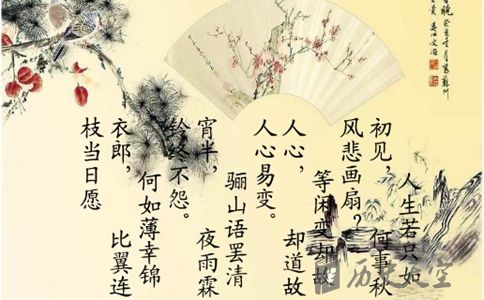 人生若只如
初见，何事秋
风悲画扇？
等闲变却故
人心，却道故
人心易变。
骊山语罢清
宵半，夜雨霖
铃终不怨。
何如薄幸锦
衣郎，比翼连
枝当日愿
历史天空